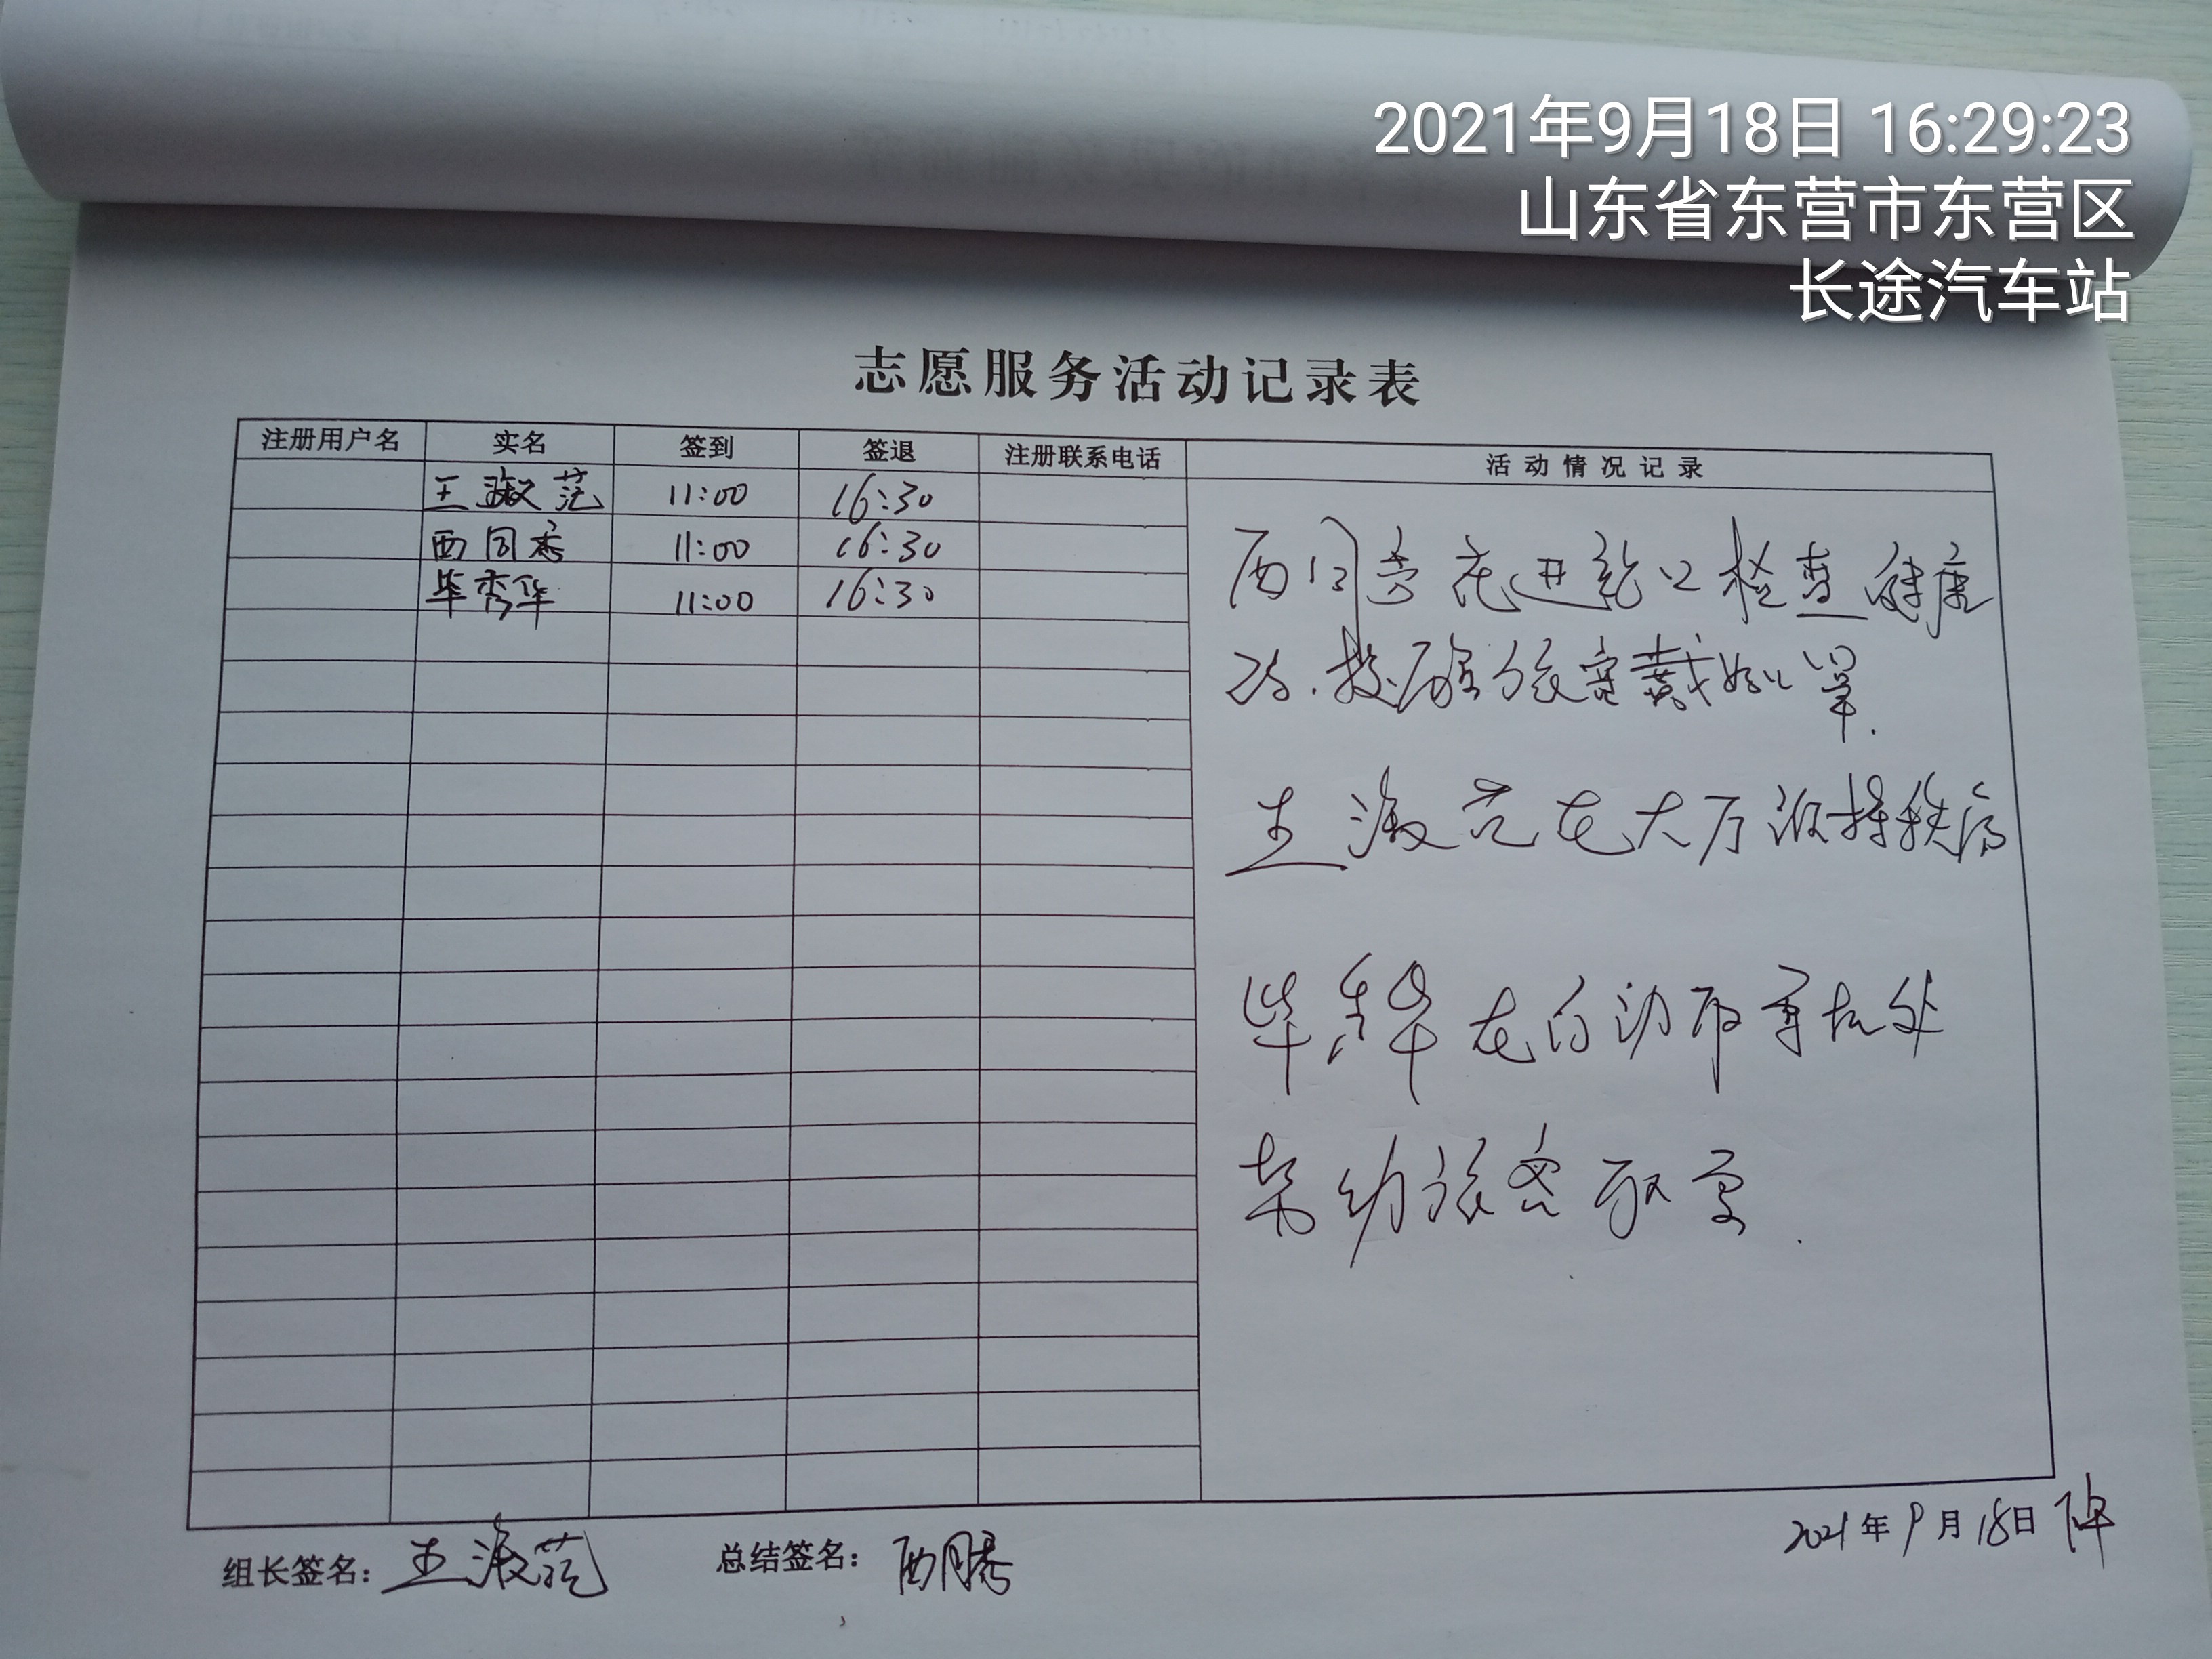 2021年9月18日 16:29:23
山东省东营市东营区
长途汽车站
志愿服务活动记录表
注册用户名 实名 签到 签退 注册联系电话 活动情况记录
王淑范 11:00 16:30
西同秀 11:00 16:30
毕秀华 11:00 16:30
西同秀在进站口检查健康
码.提醒旅客戴好口罩.
王淑范在大厅维持秩序
毕秀华在自动取票机处
帮助旅客取票.
组长签名：王淑范 总结签名：西同秀
2021年9月18日 下午